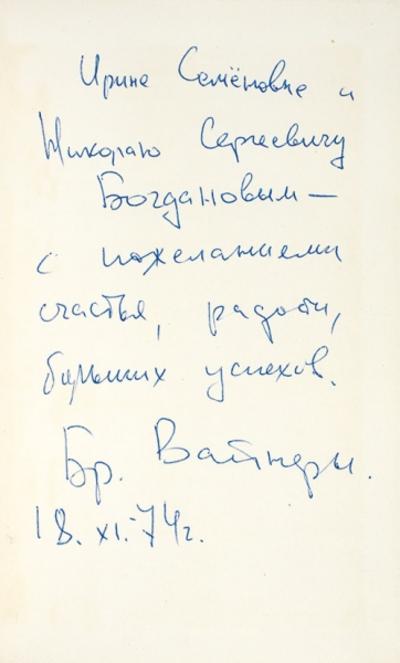 Ирине Семёновне и
Николаю Сергеевичу
Богдановым —
с пожеланиями
счастья, радости,
больших успехов.
Бр. Вайнеры.
18.XI.-74г.